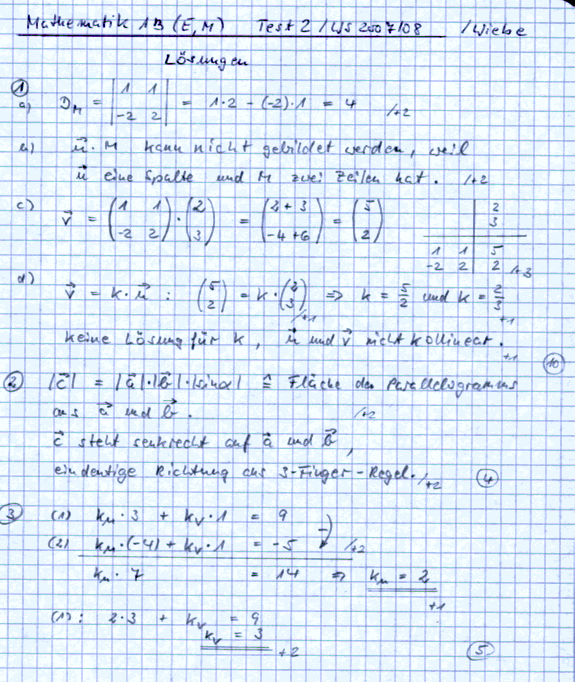 Mathematik AB (E, M) Test 2 / WS 2007/08 / Wiebe
Lösungen
① a) D_M = | 1 1 ; -2 2 | = 1·2 - (-2)·1 = 4 /+2
b) u⃗ · M kann nicht gebildet werden, weil
u⃗ eine Spalte und M zwei Zeilen hat. /+2
c) v⃗ = ( 1 1 ; -2 2 ) · ( 2 ; 3 ) = ( 2 + 3 ; -4 + 6 ) = ( 5 ; 2 )
2
3
1 1 5
-2 2 2 /+3
d) v⃗ = k · u⃗ : ( 5 ; 2 ) = k · ( 2 ; 3 ) ⇒ k = 5/2 und k = 2/3
/+1 +1
keine Lösung für k, u⃗ und v⃗ nicht kollinear. +1
⑩
② |c⃗| = |a⃗|·|b⃗|·|sinα| ≙ Fläche des Parallelogramms
aus a⃗ und b⃗. /+2
c⃗ steht senkrecht auf a⃗ und b⃗,
eindeutige Richtung aus 3-Finger-Regel. /+2 ④
③ (1) k_u · 3 + k_v · 1 = 9
(2) k_u · (-4) + k_v · 1 = -5 - /+2
k_u · 7 = 14 ⇒ k_u = 2
+1
(1): 2·3 + k_v = 9
k_v = 3 +2 ⑤